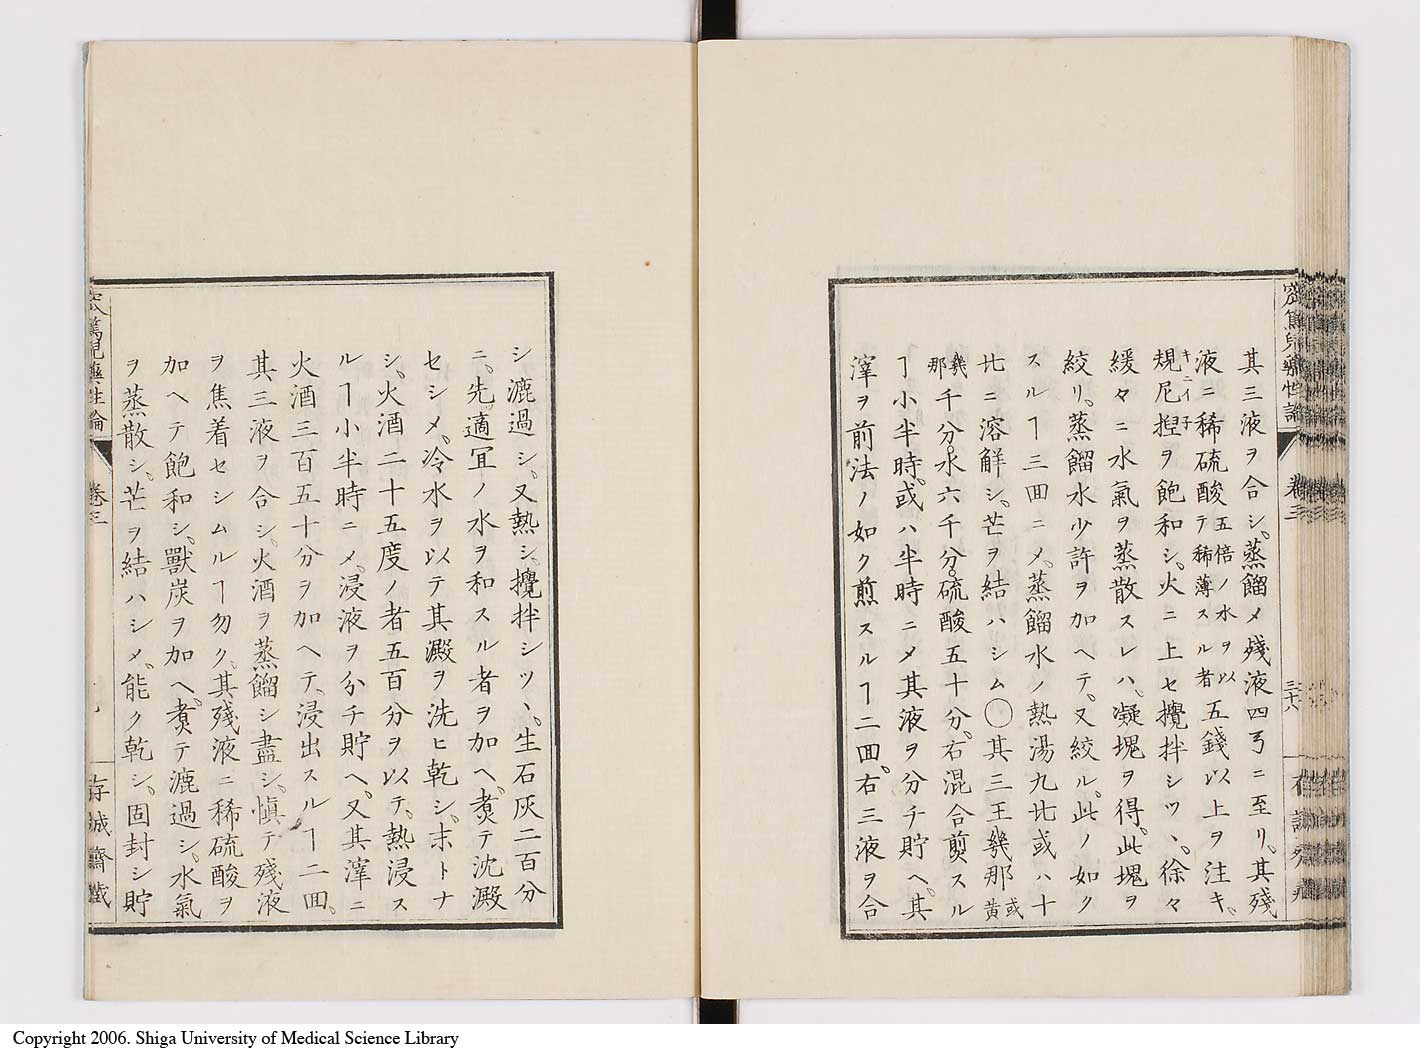 其三液ヲ合シ。蒸餾メ殘液四丐ニ至リ。其殘
液ニ稀硫酸五倍ノ水ヲ以テ稀薄スル者五錢以上ヲ注キ。
規尼揑キニイ子ヲ飽和シ。火ニ上セ攪拌シツヽ。徐々
緩々ニ水氣ヲ蒸散スレハ。凝塊ヲ得。此塊ヲ
絞リ。蒸餾水少許ヲ加ヘテ。又絞ル。此ノ如ク
スルヿ三回ニメ。蒸餾水ノ熱湯九比或ハ十
比ニ溶解シ。芒ヲ結ハシム○其三王幾那或黄
幾那千分。水六千分。硫酸五十分。右混合煎スル
ヿ小半時。或ハ半時ニメ其液ヲ分チ貯ヘ。其
滓ヲ前法ノ如ク煎スルヿ二回。右三液ヲ合
卷三
三十八
シ漉過シ。又熱シ。攪拌シツヽ。生石灰二百分
ニ。先適宜ノ水ヲ和スル者ヲ加ヘ。煑テ沈澱
セシメ。冷水ヲ以テ其澱ヲ洗ヒ乾シ。ホトナ
シ。火酒二十五度ノ者五百分ヲ以テ。熱浸ス
ルヿ小半時ニメ。浸液ヲ分チ貯ヘ。又其滓ニ
火酒三百五十分ヲ加ヘテ。浸出スルヿ二回。
其三液ヲ合シ。火酒ヲ蒸餾シ盡シ。愼テ殘液
ヲ焦着セシムルヿ勿ク。其殘液ニ稀硫酸ヲ
加ヘテ飽和シ。獸炭ヲ加ヘ。煑テ漉過シ。水氣
ヲ蒸散シ。芒ヲ結ハシメ。能ク乾シ。固封シ貯
篤兒藥性論
卷三
存誠齋藏
Copyright 2006. Shiga University of Medical Science Library